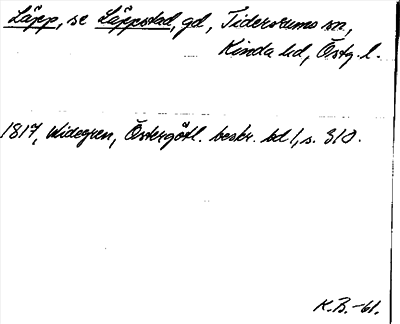 Läpp, se Läppstad, gd, Tidersrums sn,
Kinda hd, Östg. l.
1817, Widegren, Östergötl. beskr. bd 1, s. 310.
K.B.-61.